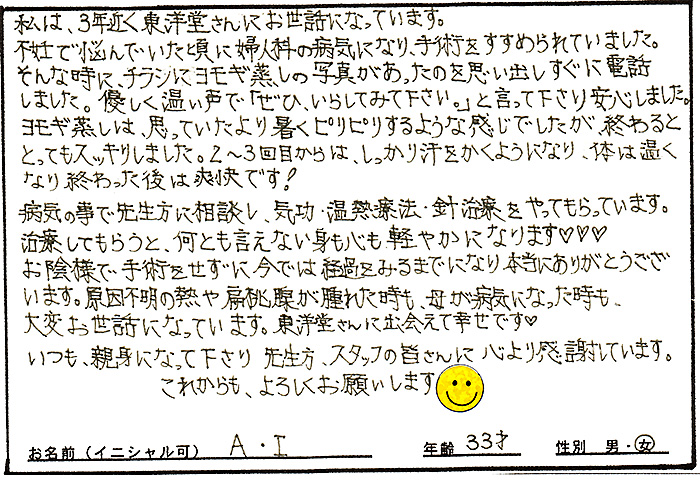 私は、3年近く東洋堂さんにお世話になっています。
不妊で悩んでいた頃に婦人科の病気になり、手術をすすめられていました。
そんな時に、チラシにヨモギ蒸しの写真があったのを思い出しすぐに電話
しました。優しく温い声で「ぜひ、いらしてみて下さい。」と言って下さり安心しました。
ヨモギ蒸しは、思っていたより暑くピリピリするような感じでしたが、終わると
とってもスッキリしました。2〜3回目からは、しっかり汗をかくようになり、体は温く
なり終わった後は爽快です!
病気の事で先生方に相談し、気功・温熱療法・針治療をやってもらっています。
治療してもらうと、何とも言えない身も心も軽やかになります♡♡♡
お陰様で手術をせずに、今では経過をみるまでになり本当にありがとうござ
います。原因不明の熱や扁桃腺が腫れた時も、母が病気になった時も、
大変お世話になっています。東洋堂さんに出会えて幸せです♡
いつも、親身になって下さり 先生方、スタッフの皆さんに心より感謝しています。
これからも、よろしくお願いします
お名前(イニシャル可) A・I 年齢 33才 性別 男・女